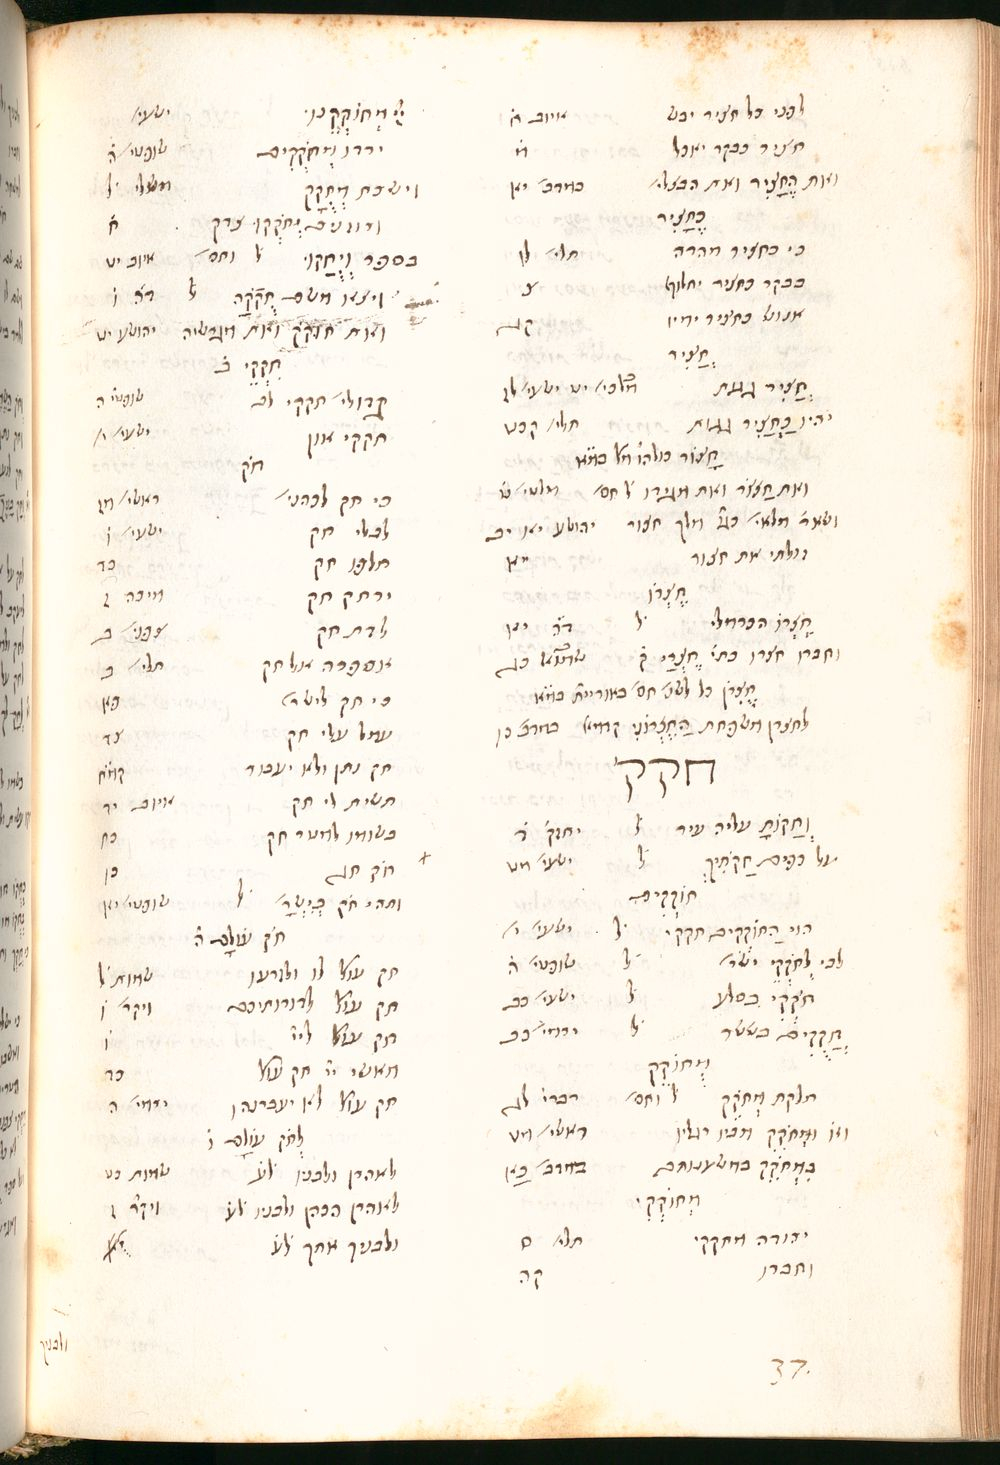 לפני כל חציר יבש איוב ח
חציר כבקר יאכל מ
ואת הֶחָצִיר ואת הבצלי׳ במדב׳ יא
כֶּחָצִיר
כי כחציר מהרה תלי׳ לז
בבקר כחציר יחלוף צ
אנוש כחציר ימיו קג
חֲצִיר
חֲצִיר גגות מלכי׳ יט ישעי׳ לז
יהיו כַּחֲצִיר גגות תלי׳ קכט
ואת חָצוֹר ואת מגדו ל׳ חס׳ מלכי׳ ט
ושאר׳ מלאי׳ מלך חצור יהושע יא יב
גולתי את חצור יא
חֶצְרוֹ
חֶצְרוֹ הכרמלי ל׳ ד״ה יא
וחברו חצרו כתי׳ חֶצְרַי ק׳ שמואל כג
לחצרן משפחת הַחֶצְרוֹנִי קדמא במדב׳ כו
חקק
וְחַקּוֹתָ עליה עיר ל׳ יחזק׳ ד
על כפים חַקֹּתִיךְ ל׳ ישעי׳ מט
חוֹקְקִים
הוי הַחוֹקְקִים חקקי ל׳ ישעי׳ י
לבי לְחוֹקְקֵי ישר׳ ל׳ שופטי׳ ה
חֹקְקִי בסלע ל׳ ישעי׳ כב
חֲקֻקִים בששר ל׳ יחזק׳ כג
מְחוֹקֵק
חלקת מְחֹקֵק ל׳ וחס׳ דברי׳ לג
ומְחֹקֵק מבין רגליו ראשי׳ מט
בִּמְחֹקֵק במשענותם במדב׳ כא
מְחוֹקְקִי
יהודה מחקקי תלי׳ ס
וחברו קח
יי׳ מְחוֹקְקֵנוּ ישעי׳
ירדו מְחֹקְקִים שופטי׳ ה
וישבת מְחֻקָּק משלי ל
ורוזנים יְחֹקְקוּ צדק ח
בספר וְיֻחָקוּ ל׳ וחס׳ איוב יט
ויצאו משם חֻקֹּקָה ל׳ ד״ה ו
ואת חוקק ואת מגרשיה יהושע יט
חִקְקֵי ב
גדולי׳ חקקי לב שופטי׳ ה
חקקי און ישעי׳ י
חֹק
כי חק לכהני׳ ראשי׳ מז
לבלי חק ישעי׳ ו
חלפו חק כד
ירחק חק מיכה ז
לדת חק צפני׳ ב
אספרה אל חק תלי׳ ב
כי חק לישר׳ פא
עמל עלי חק צד
חק נתן ולא יעבור קמח
תשית לי חק איוב יד
בשומו למטר חק כח
חוֹק חג כו
ותהי חֹק בְּיִשְׂרָ׳ ל׳ שופטי׳ יא
חֹק עוֹלָם ה
חק עול׳ לו ולזרעו שמות ל
חק עול׳ לדורותיכם ויקר׳ ו
חק עול׳ ליי׳ ו
מאשי יי׳ חק עול׳ כד
חק עול׳ לא יעברנהו ירמי׳ ה
לְחֹק עוֹלָם ו
לאהרן ולבניו לע׳ שמות כט
לאהרן הכהן ולבניו לע׳ ויקר׳ ז
ולבניך אתך לע׳
ולבניך
37.